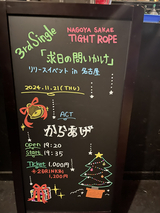 NAGOYA SAKAE
TIGHT ROPE
3rd Single
「求日の問いかけ」
リリースイベント in 名古屋
2024.11.21(THU)
ACT
からあげ
OPEN 19:20
START 19:35
Ticket 1,000円
+2DRINKS
1,200円